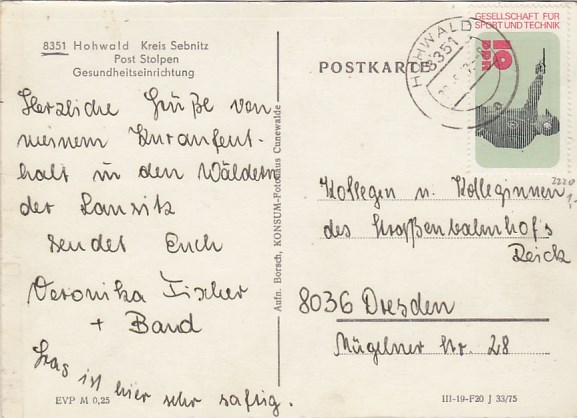 8351 Hohwald Kreis Sebnitz
Post Stolpen
Gesundheitseinrichtung
Herzliche Grüße von
meinem Kuraufent-
halt in den Wäldern
der Lausitz
sendet Euch
Veronika Fischer
+ Band
Gras ist hier sehr saftig.
EVP M 0,25
Aufn. Borsch, KONSUM-Fotohaus Cunewalde
POSTKARTE
HOHWALD
8351
GESELLSCHAFT FÜR
SPORT UND TECHNIK
10
DDR
Kollegen u. Kolleginnen
des Straßenbahnhofs
Reick
8036 Dresden
Mügelner Str. 28
2220
1,-
III-19-F20 J 33/75